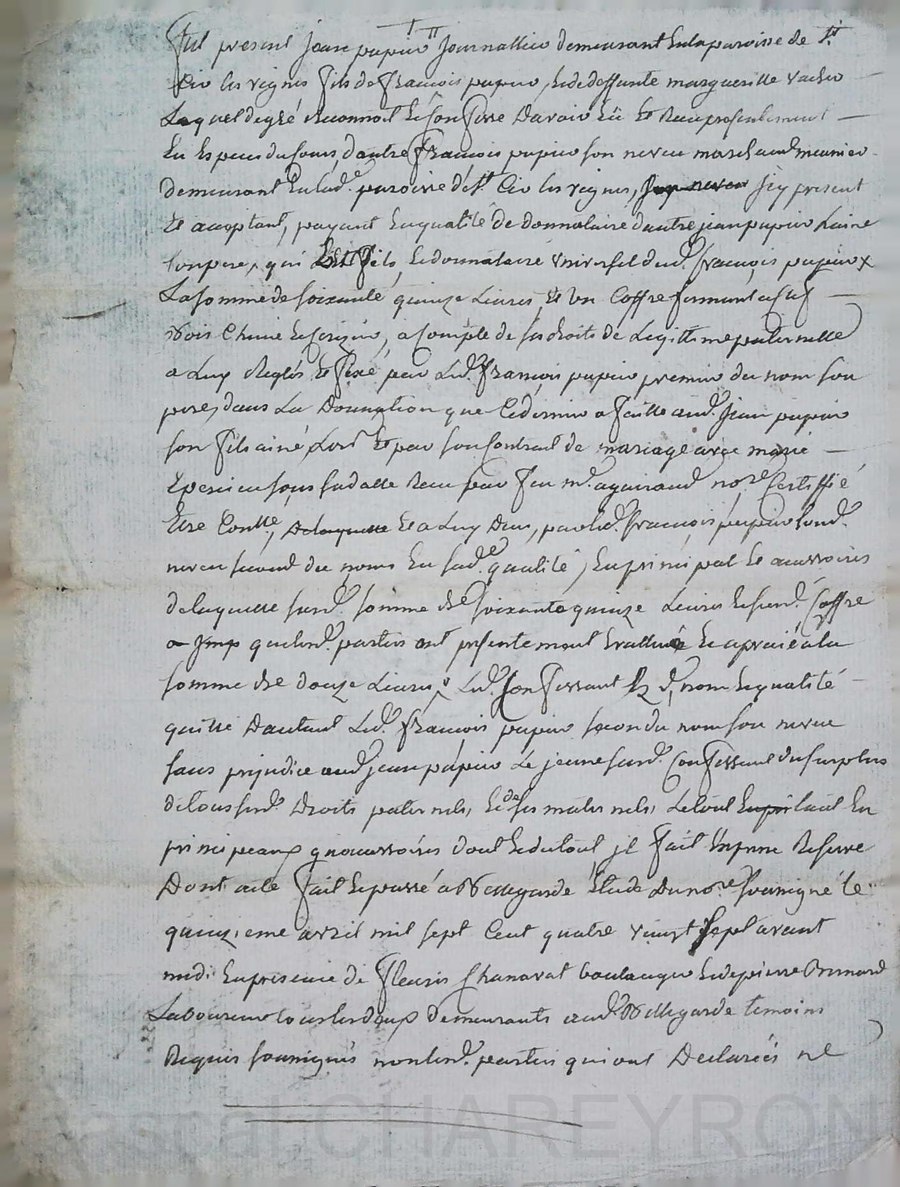 Fut present Jean papin Journallier demeurant en la paroisse de St
Cir les vignes fils de François papin, et de deffunte margueritte vacher
Lequel degré reconnoit et Confesse Davoir Eü et Receu presentement
En Especes du Cours, d'autre François papin son neveu marchand meunier
demeurant En lad.e paroisse de St Cir les vignes, Jcy present
Et acceptant, payant En qualité de donnataire d'autre jean papin Laine
son pere, qui Est fils, et donnataire Vniversel dud. François papin
La somme de soixante quinze Livres Et un Coffre fermant a Clef
Bois Chene et , a Compte de ses droits de Legittime paternelle
a Luy Reglés Et fixé par Led. François papin premier du nom son
pere, dans La Donnation que Ce dernier a faitte aud. Jean papin
son fils ainé, Lors Et par son Contrat de mariage avec marie
 sous sa datte Receu par feu me. no.re Certiffié
Etre Conttlé, Delaquelle Et a Luy Deus, par led. François papin son d.
neveu second du nom En sad.e qualité, En principal Et accessoires
de laquelle susd. somme de soixante quinze Livres et susd. Coffre
 que lesd. parties ont presentement Evallué Et aprecié a la
somme de douze Livres, Led. Confessant d. nom et qualité
quitte Dautant Led. François papin second du nom son neveu
sans prejudice aud. jean papin Le jeune susd. Confessant du surplus
de tous susd. Droits paternels, Et de ses maternels, Le tout tant En
principeaux qu'accessoires Dont Et du tout jl fait Expresse Reserve
Dont acte fait Et passé a Bellegarde Etude Du no.re soussigné le
quinzieme avril mil sept Cent quatre vingt sept avant
midi En presence de fleuris Chanavat boulanger Et de pierre
Laboureur tous les deux demeurants aud. Bellegarde temoins
Requis soussignés non lesd. parties qui ont Declarées ne
Pascal CHAREYRON